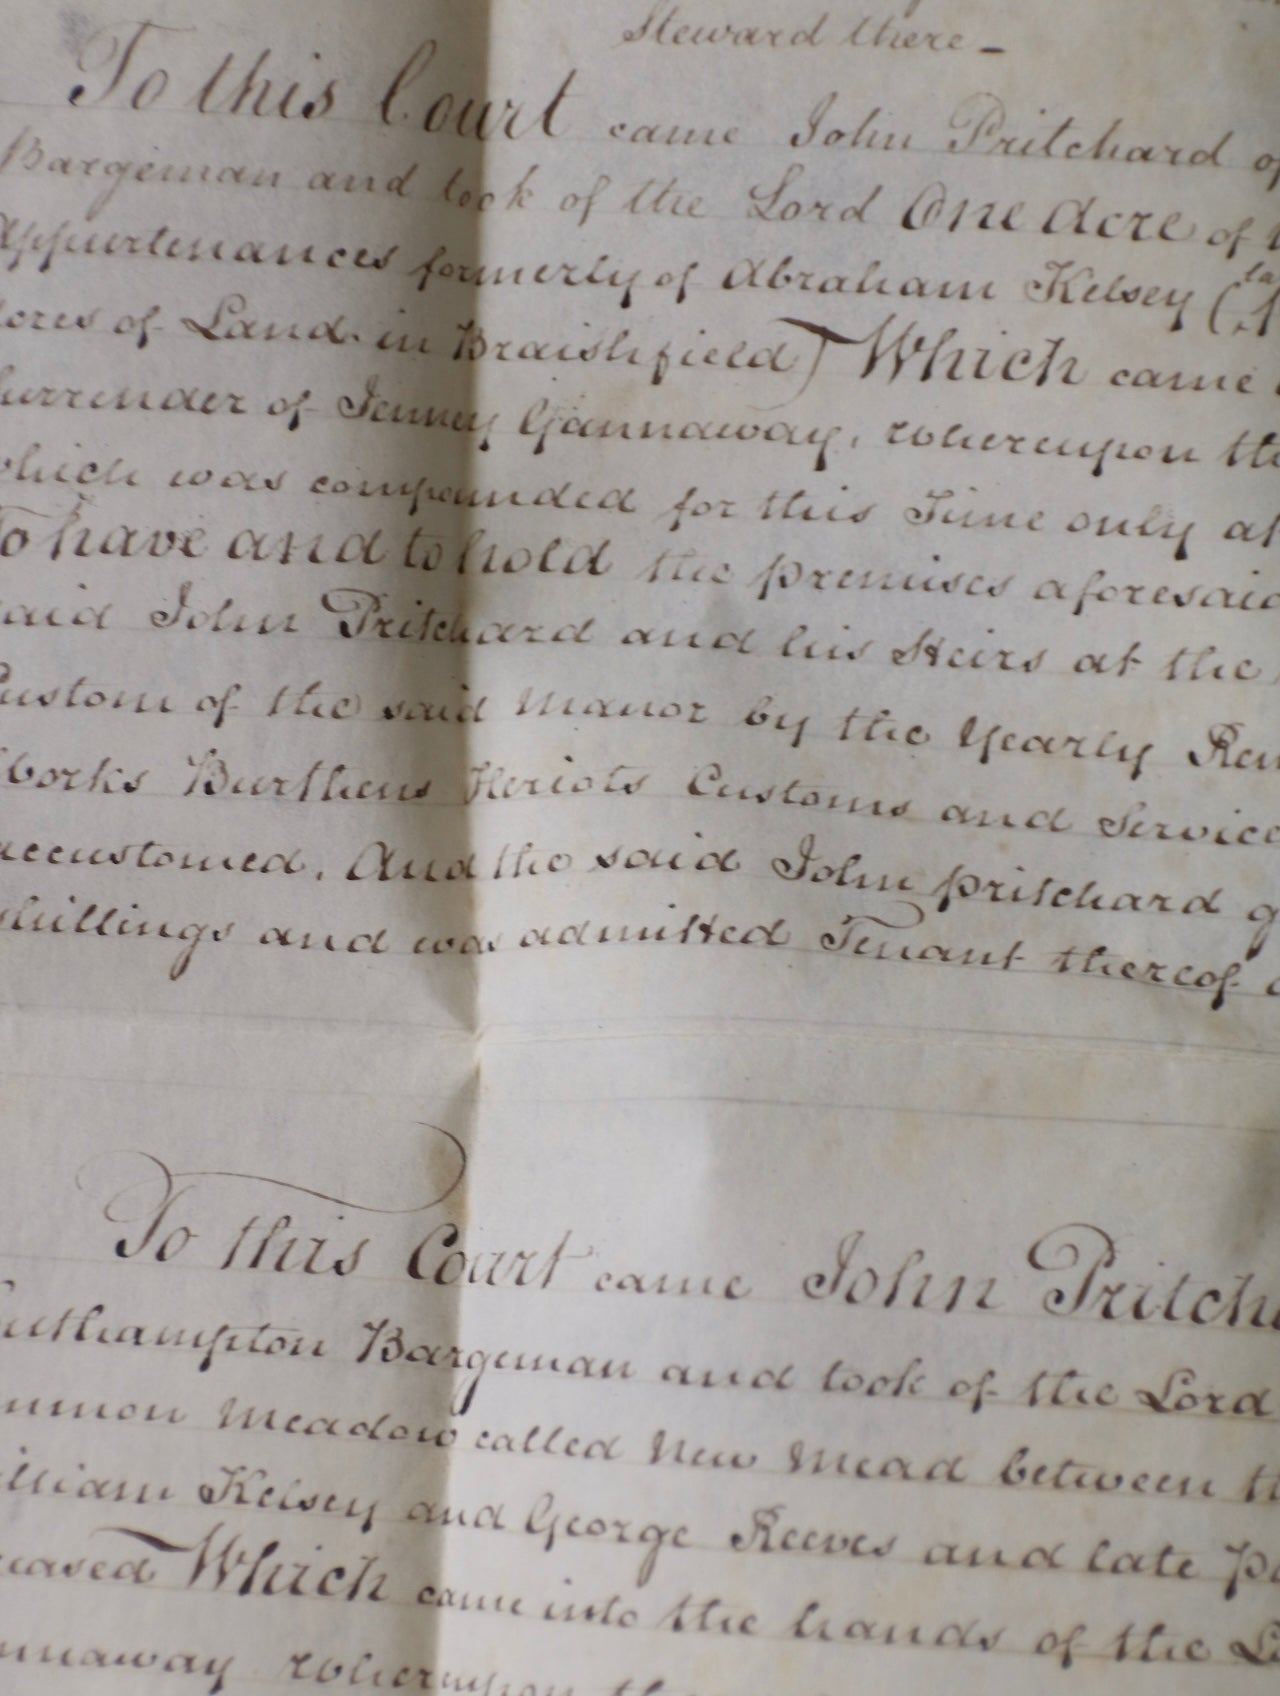 Steward there -
To this Court came John Pritchard of
Bargeman and took of the Lord One Acre of
Appurtenances formerly of Abraham Kelsey (
Acres of Land in Braishfield) Which came
Surrender of Jenney Gannaway, whereupon the
which was compounded for this Time only at
To have and to hold the premises aforesaid
said John Pritchard and his Heirs at the
Custom of the said Manor by the Yearly Ren
Works Burthens Heriots Customs and Service
accustomed. And the said John Pritchard g
shillings and was admitted Tenant thereof
To this Court came John Pritch
outhampton Bargeman and took of the Lord
mmon Meadow called New Mead between th
illiam Kelsey and George Reeves and late
ceased Which came into the hands of the
nnaway whereupon the